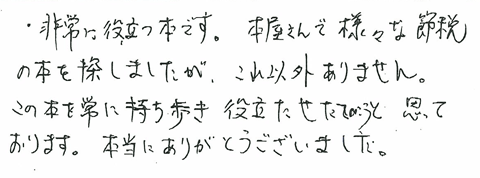 ・非常に役立つ本です。 本屋さんで様々な節税
の本を探しましたが、これ以外ありません。
この本を常に持ち歩き 役立たせたいと 思って
おります。 本当にありがとうございました。